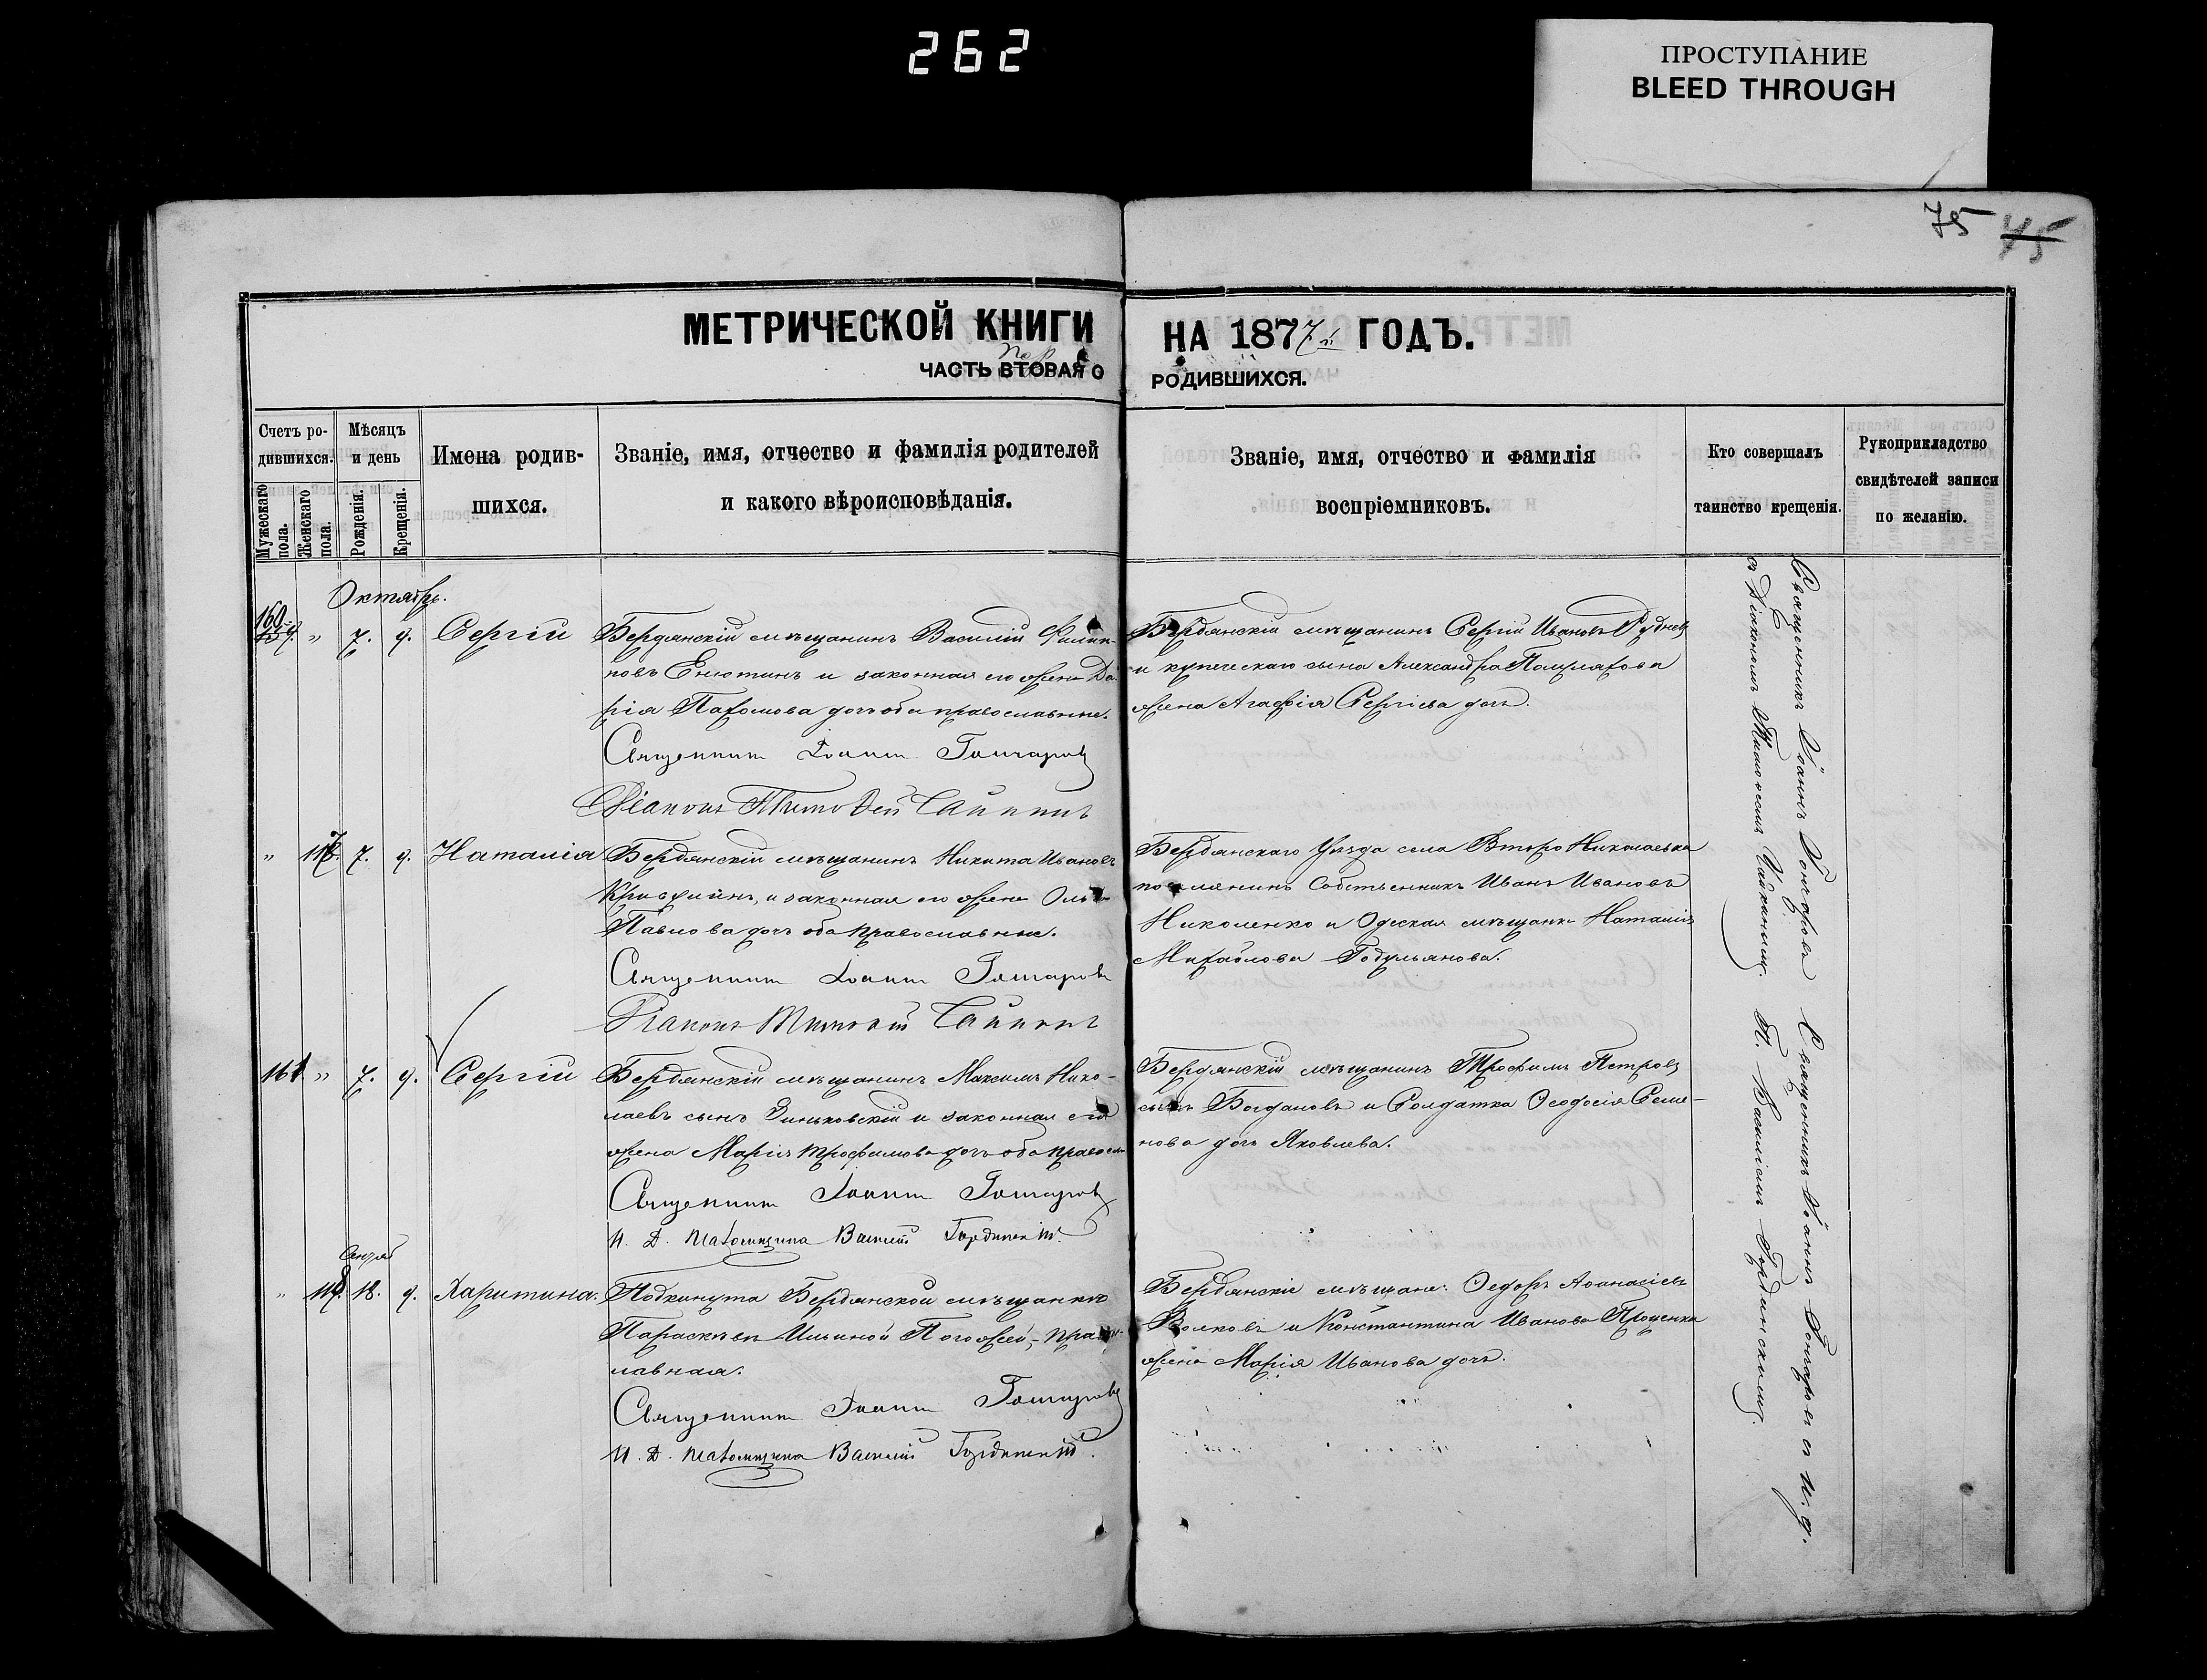 262
ПРОСТУПАНИЕ
BLEED THROUGH
75 45
МЕТРИЧЕСКОЙ КНИГИ НА 1877й ГОДЪ.
ЧАСТЬ ВТОРАЯ О РОДИВШИХСЯ.
Счетъ родившихся.
Мужескаго пола.
Женскаго пола.
Мѣсяцъ и день
Рожденія.
Крещенія.
Имена родив-
шихся.
Званіе, имя, отчество и фамилія родителей
и какого вѣроисповѣданія.
Званіе, имя, отчество и фамилія
воспріемниковъ.
Кто совершалъ
таинство крещенія.
Рукоприкладство
свидѣтелей записи
по желанію.
Октябрь.
160 " 7. 9. Сергій
Бердянскій мѣщанинъ Василій Филип-
повъ Енютинъ и законная его жена Да-
рія Пахомова дочь оба православные.
Священникъ Іоаннъ Гончаровъ
Діаконъ Тимоѳей Чайкинъ
Бердянскій мѣщанинъ Сергій Ивановъ Рудневъ
и купеческаго сына Александра
жена Агафія Сергіева дочь.
" 117. 7. 9. Наталія
Бердянскій мѣщанинъ Никита Ивановъ
и законная его жена
Павлова дочь оба православные.
Священникъ Іоаннъ Гончаровъ
Діаконъ Тимоѳей Чайкинъ
Бердянскаго Уѣзда села Второ Николаевка
поселянинъ Собственникъ Иванъ Ивановъ
Николенко и Одеская мѣщанка Наталія
Михайлова Годульянова.
161 " 7. 9. Сергій
Бердянскій мѣщанинъ Максимъ Нико-
лаевъ сынъ Зиньковскій и законная его
жена Марія Трофимова дочь оба правосл
Священникъ Іоаннъ Гончаровъ
И. Д. Псаломщика Василій Гординскій
Бердянскій мѣщанинъ Трофимъ Петровъ
сынъ Богдановъ и Солдатка Ѳеодосія Семе-
нова дочь Яковлева.
" 118. 18. 9. Харитина.
Подкинута Бердянской мѣщанкѣ
Параскѣвѣ Ильиной Погожей, - право-
лавная.
Священникъ Іоаннъ Гончаровъ
И. Д. Псаломщика Василій Гординскій.
Бердянскіе мѣщане: Ѳедоръ Аѳанасіевъ
Волковъ и Константина Иванова Проценка
жена Марія Иванова дочь.
Священникъ Іоаннъ Гончаровъ
съ Діакономъ Тимоѳеемъ Чайкинымъ.
Священникъ Іоаннъ Гончаровъ съ И. д.
П. Василіемъ Гординскимъ.